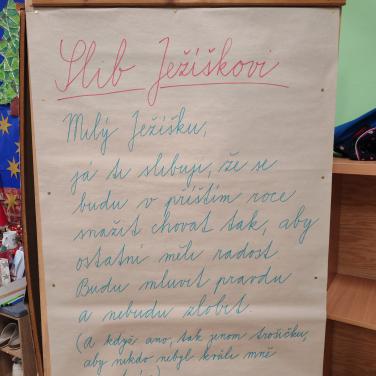 Slib Ježíškovi
Milý Ježíšku,
já ti slibuji, že se
budu v příštím roce
snažit chovat tak, aby
ostatní měli radost
Budu mluvit pravdu
a nebudu zlobit.
(a když ano, tak jenom trošičku,
aby nikdo nebyl kvůli mně